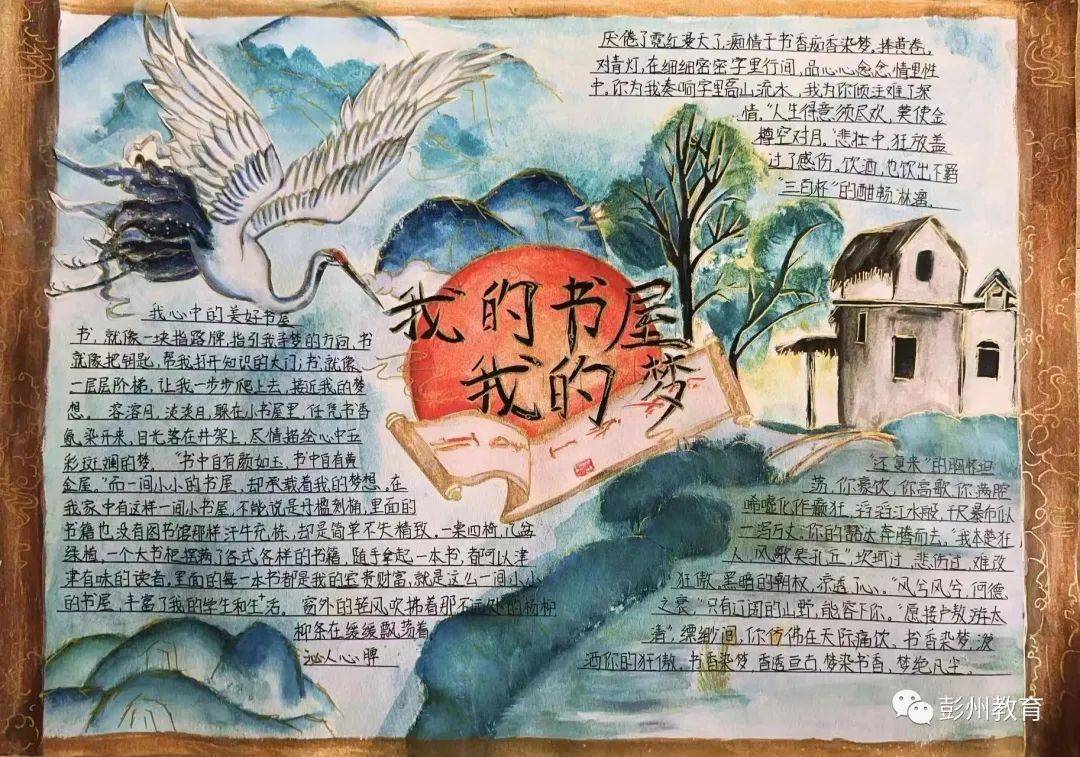 我的书屋
我的梦
我心中的美好书屋
书，就像一块指路牌，指引我寻梦的方向，书
就像把钥匙，帮我打开知识的大门；书就像
一层层阶梯，让我一步步爬上去，接近我的梦
想。溶溶月，淡淡月，躲在小书屋里，任凭书香
氤染开来，日光落在井架上，尽情描绘心中五
彩斑斓的梦。“书中自有颜如玉，书中自有黄
金屋。”而一间小小的书屋，却承载着我的梦想。在
我家中有这样一间小书屋，不能说是丹楹刻桷，里面的
书籍也没有图书馆那样汗牛充栋，却是简单不失精致。一桌四椅，几盆
绿植，一个大书柜摆满了各式各样的书籍，随手拿起一本书，都可以津
津有味的读者，里面的每一本书都是我的宝贵财富，就是这么一间小小
的书屋，丰富了我的学生和生活。窗外的轻风吹拂着那不远处的杨柳
柳条在缓缓飘荡着
沁人心脾
厌倦了霓红漫天了，痴情于书香痴香染梦，捧黄卷，
对青灯，在细细密密字里行间，品心心念念情里性
中，你为我奏响字里高山流水，我为你倾注难了深
情。“人生得意须尽欢，莫使金
樽空对月。”悲壮中，狂放盖
过了感伤。饮酒，也饮出不羁
“三百杯”的酣畅淋漓。
“还复来”的胸怀坦
荡，你豪饮，你高歌，你满腔
唏嘘化作癫狂，滔滔江水般，千尺瀑布似
一泻万丈，你的豁达奔腾而去，“我本楚狂
人，风歌笑孔丘”，坎坷过，悲伤过，难改
狂傲，黑暗的朝权，凉透了心。“风兮风兮，何德
之衰”只有辽阔的山野，能容下你。“愿接卢敖游太
清”，缥缈间，你仿佛在天际痛饮。书香染梦，泼
洒你的狂傲，书香染梦，香透亘古，梦染书香，梦绝凡尘。
彭州教育